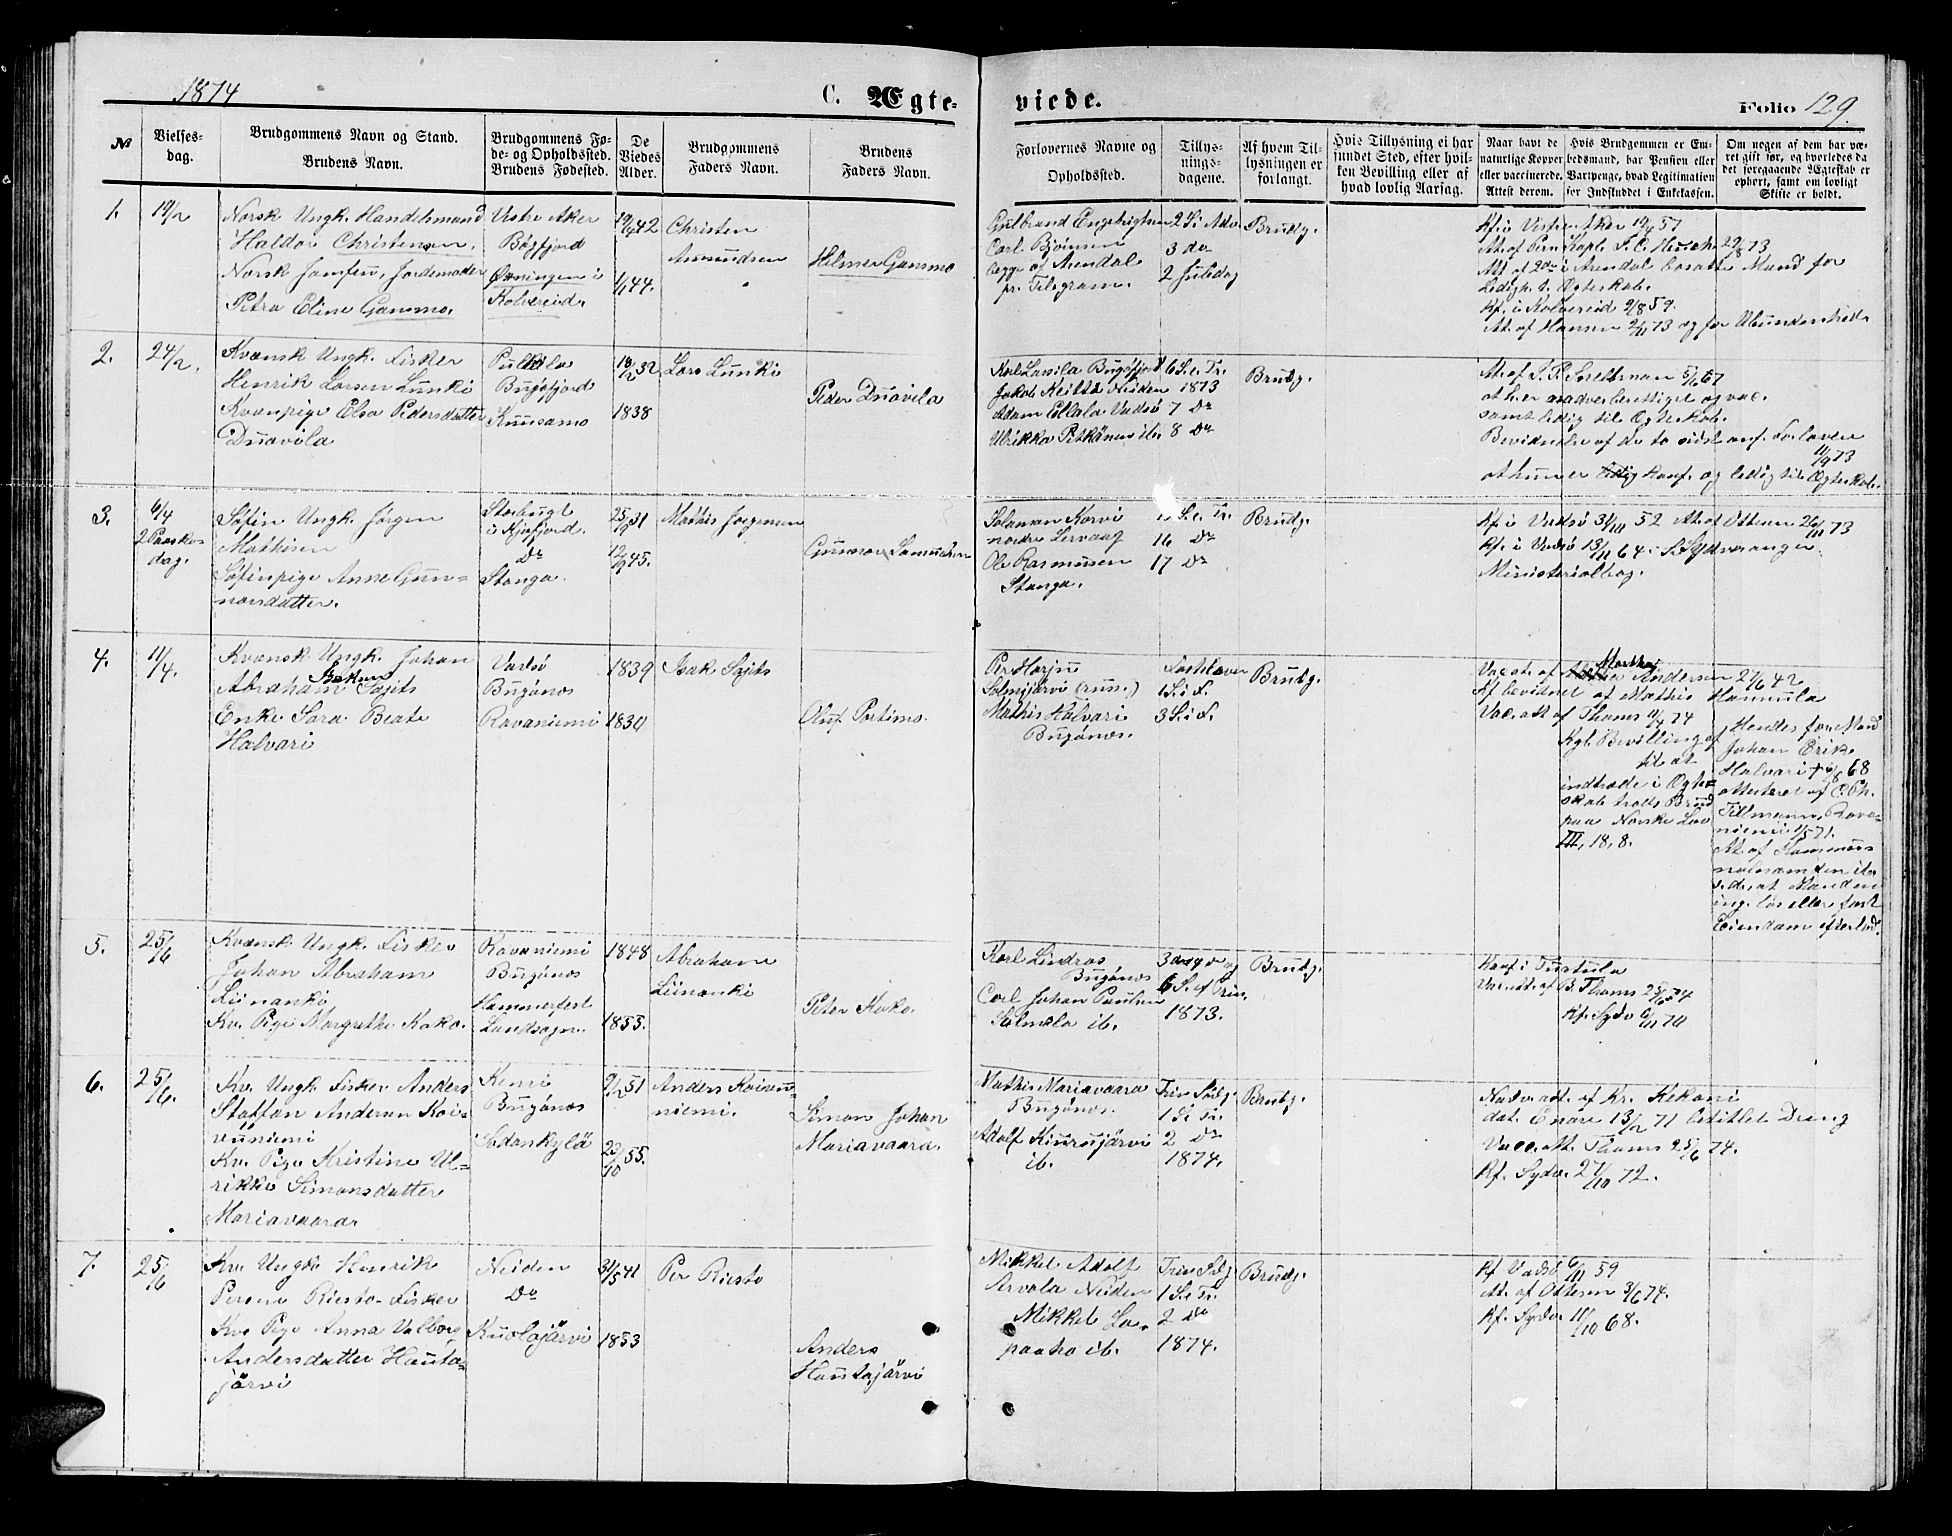 1874
C. Ægte-
viede.
Folio 129.
№
Vielses-
dag.
Brudgommens Navn og Stand.
Brudens Navn.
Brudgommens Fø-
de- og Opholdssted.
Brudens Fødested.
De
Viedes
Alder.
Brudgommens
Faders Navn.
Brudens
Faders Navn.
Forlovernes Navne og
Opholdssted.
Tillys-
nings-
dagene.
Af hvem Til-
lysningen er
forlangt.
Hvis Tillysning ei har
fundet Sted, efter hvil-
ken Bevilling eller af
hvad lovlig Aarsag.
Naar havt de
naturlige Kopper
eller vaccinerede.
Attest derom.
Hvis Brudgommen er Em-
bedsmand, har Pension eller
Vartpenge, hvad Legitimation
for Indskuddet i Enkekassen.
Om nogen af dem har væ-
ret gift før, og hvorledes da
det foregaaende Ægteskab er
ophørt, samt om lovligt
Skifte er holdt.
1.
Norsk Ungk. Handelsmand
Haldor Christensen.
Norsk Jomfru, Jordemoder
Petra Eline Gansmo.
Vestre Aker
Bøgfjord
Kolvereid.
Christen
Amundsen
Helmer Gansmo
Gulbrand Engebrigtsen
Carl Bjørnsen
begge af Arendal
pr. Telegram.
2 S. i Adv.
3 do
2 Juledag
Brudg.
Kf. i Vestre Aker
Ledigh. t. Ægteskab.
Kf. i Kolvereid 2/8 59.
At. af Hansen 2/11 73 og for Ubundenhed
2.
24/2.
Kvænsk Ungk. Fisker
Henrik Larsen Lunki
Kvænpige Elsa Pedersdatter
Duavila
Pulkila
Bugøfjord
Kuusamo
1838
Lars Lunki
Peder Duavila
Karl Lassila Bugøfjord
Jakob Keitti Neiden
Adam Ellala Vadsø
Ulrikka Pitkänen ib.
6 S. e. Tr.
1873
7 Do
8 Do
Brudg.
at han er nadverberettiget og vac.
samt ledig til Ægteskab.
Bevidnelse af de to sidst anf. Forlovere
11/9 73
at hun er konf. og ledig til Ægteskab.
3.
6/4
2 Paaske-
dag.
Søfin Ungk. Jørgen
Mathisen
Søfinpige Anne Gun-
narsdatter.
Storbugt
i Kjøfjord.
Do
Stanga.
25/9 31
12/9 45.
Mathis Jørgensen
Gunnar Samuelsen
Salaman Korvi
nordre Lervaag
Ole Rasmussen
Stanga.
S. e. Tr.
16 Do
17 Do
Brudg.
Kf. i Vadsø 31/10 52 At. af Ottesen 26/11 73
Kf. i Vadsø 13/11 64 i S. Sydvaranger
Ministerialbog.
4.
11/4.
Kvænsk Ungk. Johan
Abraham Isaksen Sajets
Enke Sara Beate
Halvari
Vadsø
Bugønes
Ravaniemi
1839
1830
Isak Sajets
Oluf Portimo.
Per Harju
Salmijärvi (rus.)
Mathis Halvari
Bugønes.
Fastelavn
1 S. i F.
3 S. i F.
Brudg.
Vac. at. af Andersen 21/6 42
Kf. bevidnet af Mathis Hannula
Vac. att. af Thams 11/4 74
Kgl. Bevilling af
til at
indtræde i Ægte-
skab trods Brud
paa Norske Lov
III, 18, 8.
Hendes før. Mand
Johan Erik
Halvari
68
attesteret af C. Ph.
Tillmann, Rova-
niemi 1/5 71.
At. af Hammers
nolesamfen ib.
v. d., at Manden
ing. løs eller fast
Eiendom efterlod.
5.
25/6
Kvænsk Ungk. Fisker
Johan Abraham
Liinanki
Kv. Pige Margrethe Koko.
Ravaniemi
Bugønes
Hammerfest
Landsogn.
1848
1853.
Abraham
Liinanki
Peter Koko.
Karl Lindros
Bugønes
Carl Johan Paulsen
Salmela ib.
6 S. ef. Trin.
1873.
Brudg.
Konf. i Turtula
Vac. att. af B. Thams 25/6 74
Kf. Sydv 6/11 70
6.
25/6.
Kv. Ungk. Fisker Anders
Staffan Andersen Koi-
vuniemi
Kv. Pige Kristine Ul-
rikke Simonsdatter
Mariavaara.
Kemi
Bugønes
Sodankylä
9/12 51
22/10 55.
Anders Koivu-
niemi.
Simon Johan
Mariavaara.
Mathis Mariavaara
Bugønes.
Adolf Kiurujärvi
ib.
Trin. Sødg.
1 S. e. Tr.
2 Do
1874.
Brudg.
Nadv. att. af Kr. Kekoni
dat. Enare 13/2 71 betitlet Dreng
Vacc. Att. Thams 25/6 74.
Kf. Sydv. 27/10 72.
7.
25/6
Kv. Ungk. Henrik
Persen Riesto Fisker
Kv. Pige Anna Valborg
Andersdatter Hauta-
järvi
Neiden
Do
Kuolajärvi
31/5 41
1853
Per Riesto
Anders
Hautajärvi
Mikkel Adolf
Arvola Neiden
Mikkel La-
paaho ib.
Trin. Sødg.
1 S. e. Tr.
2 Do
1874.
Brudg.
Kf. Vadsø 6/11 59
At. af Ottesen 3/6 74.
Kf. Sydv 11/10 68.